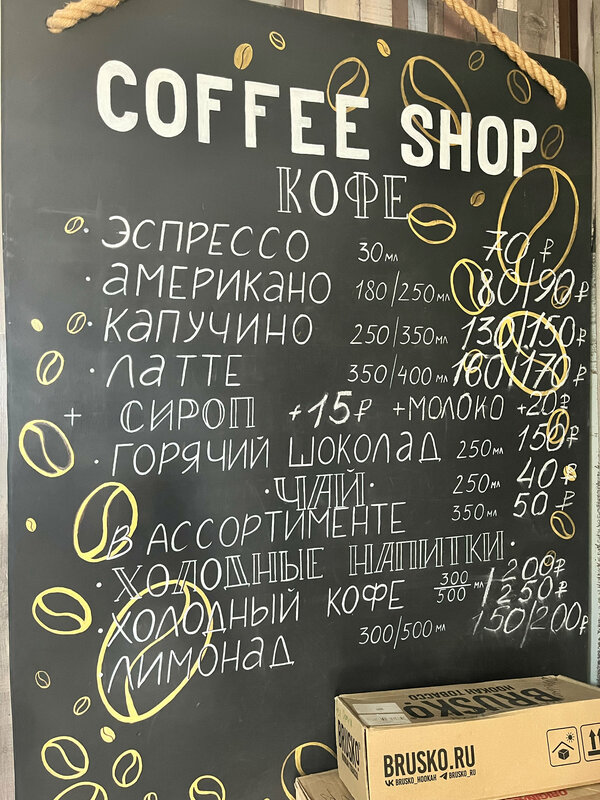 COFFEE SHOP
КОФЕ
· ЭСПРЕССО 30 мл 70 ₽
· АМЕРИКАНО 180/250 мл 80/90 ₽
· КАПУЧИНО 250/350 мл 130/150 ₽
· ЛАТТЕ 350/400 мл 160/170 ₽
+ СИРОП +15 ₽ +МОЛОКО +20 ₽
· ГОРЯЧИЙ ШОКОЛАД 250 мл 150 ₽
· ЧАЙ · 250 мл 40 ₽
В АССОРТИМЕНТЕ 350 мл 50 ₽
· ХОЛОДНЫЕ НАПИТКИ ·
· ХОЛОДНЫЙ КОФЕ 300/500 мл 200 ₽/250 ₽
· ЛИМОНАД 300/500 мл 150/200 ₽
BRUSKO
HOOKAH TOBACCO
BRUSKO
BRUSKO.RU
BRUSKO_HOOKAH BRUSKO_RU